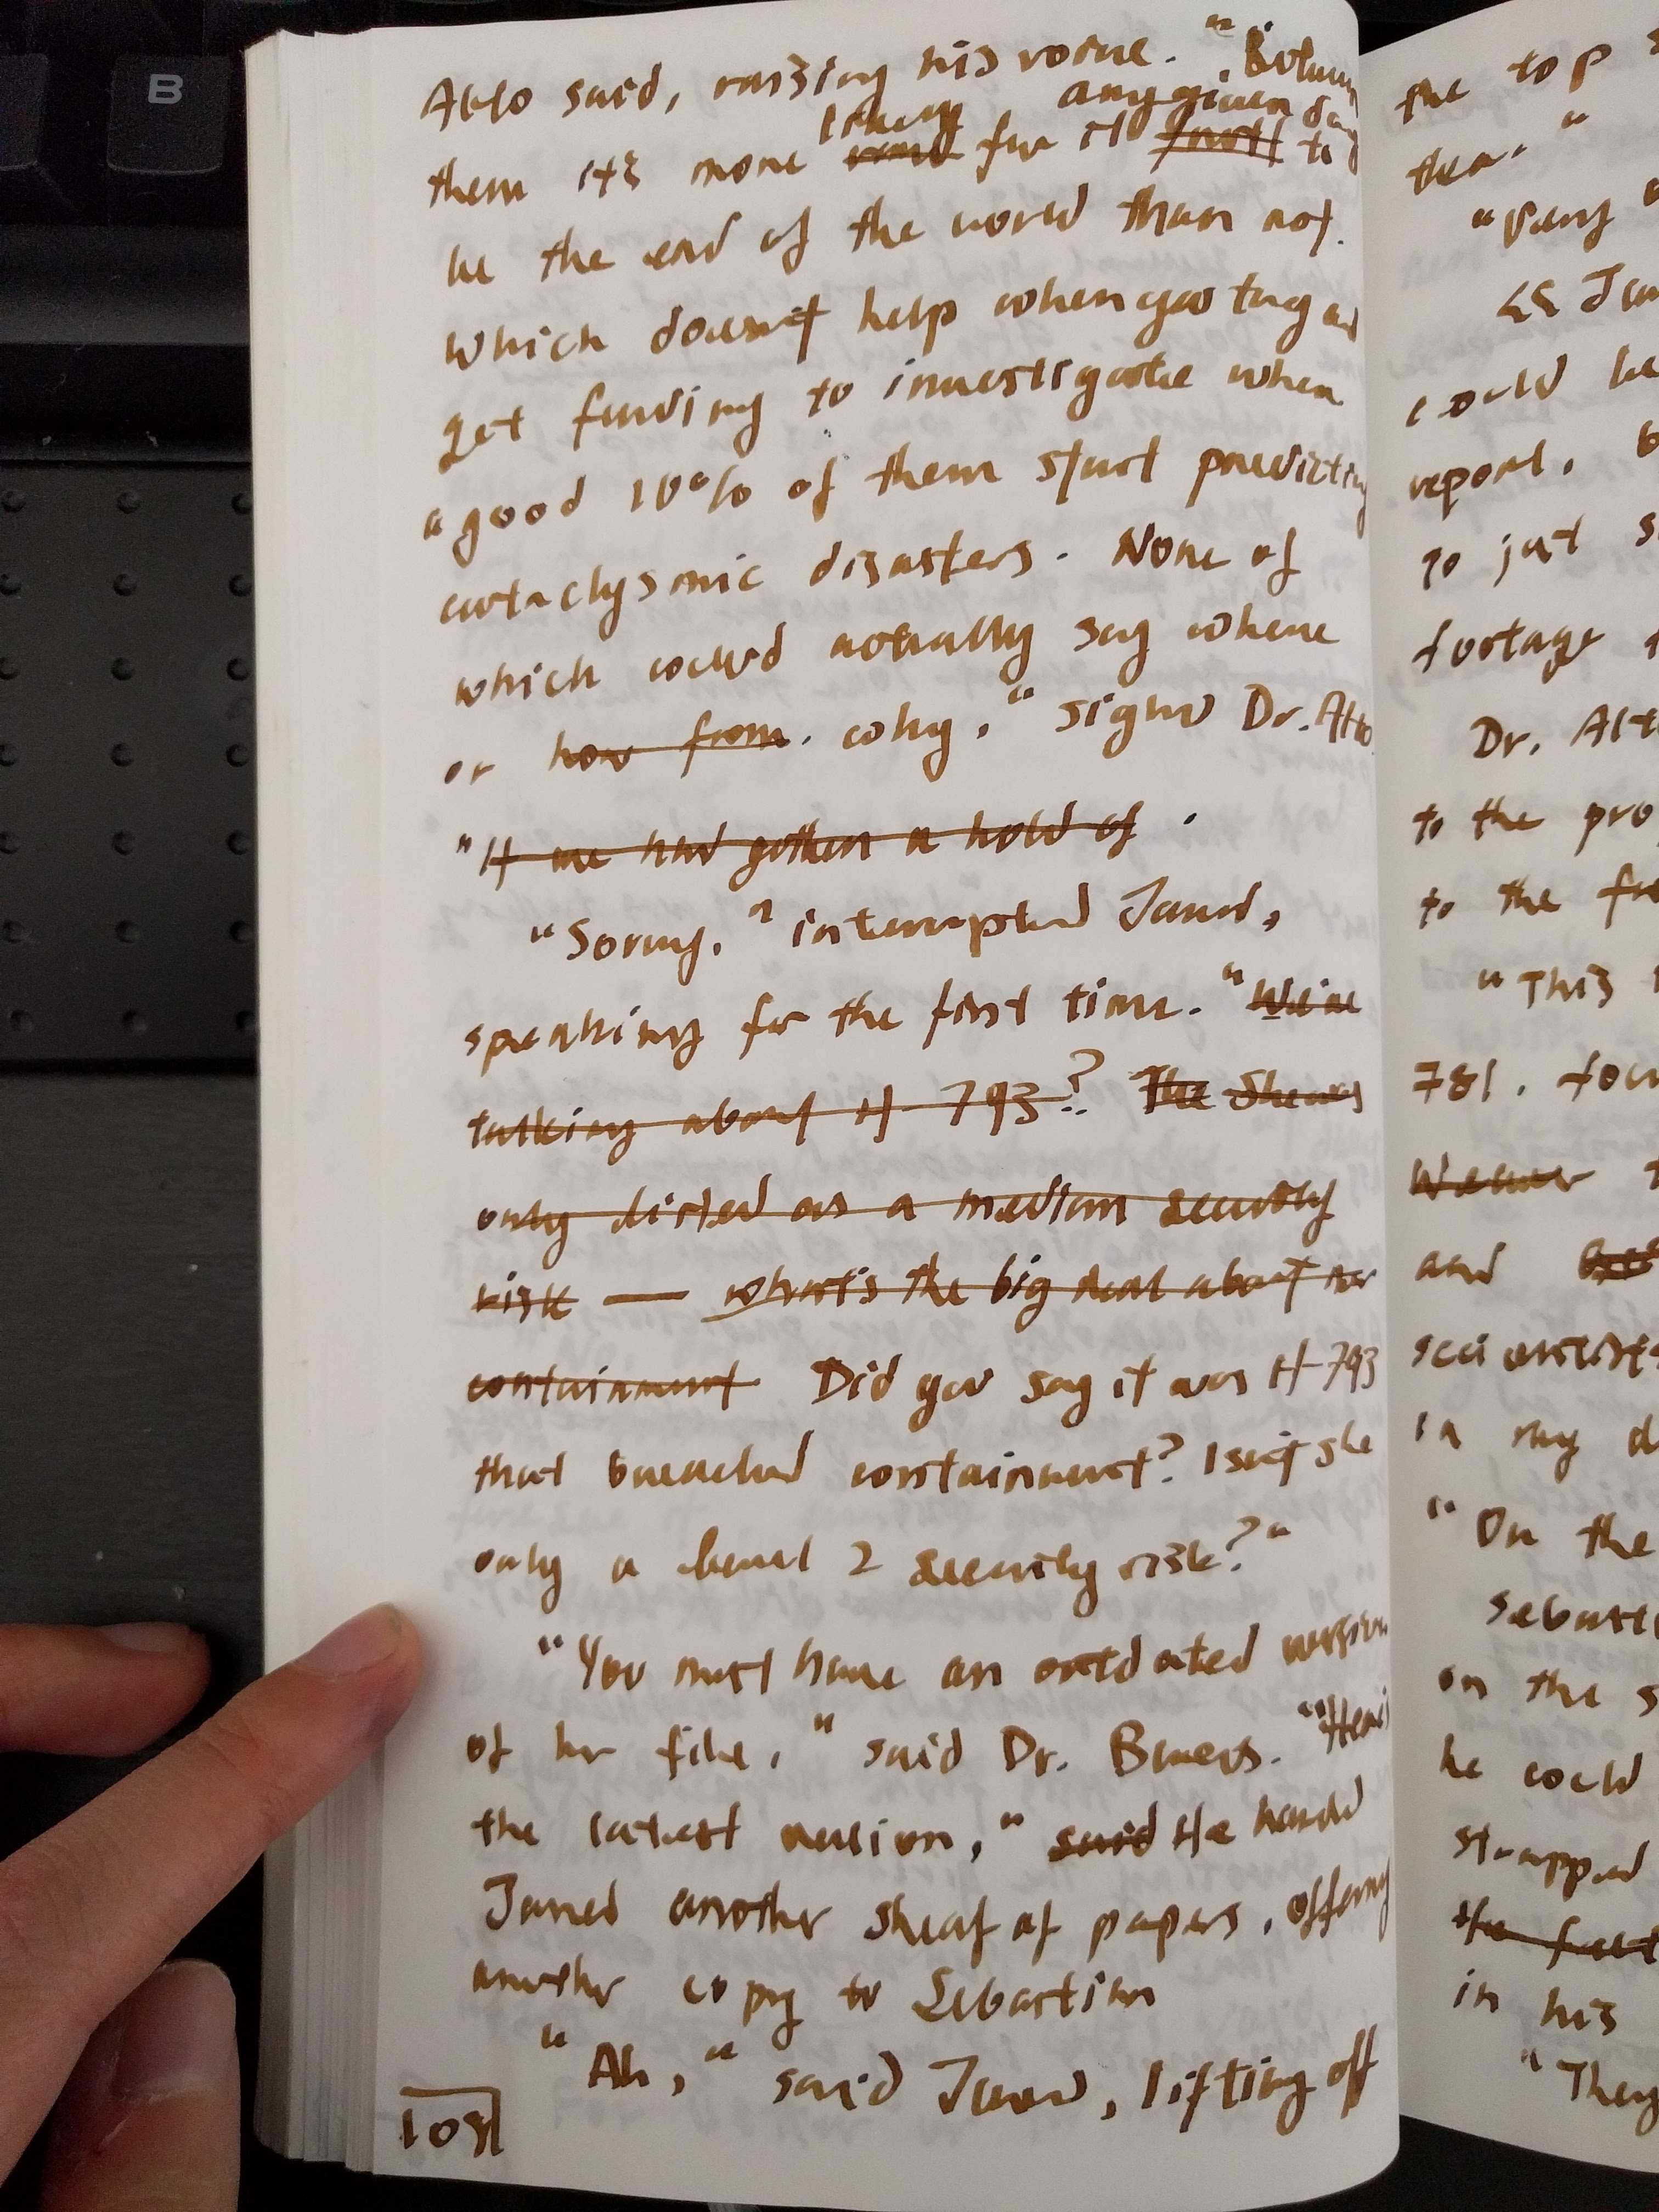 B
Alto said, raising his voice. "Between
likely any given day
them it's more for it to
be the end of the world than not.
Which doesn't help when you try and
get funding to investigate when
a good 10% of them start predicting
cataclysmic disasters. None of
which could actually say where
or how from. why," sighed Dr. Alto
"If we had gotten a hold of .
"Sorry," interrupted Jared,
speaking for the first time. "We're
talking about H-793? The She was
only listed as a medium security
risk — what's the big deal about her
containment Did you say it was H-793
that breached containment? Isn't she
only a level 2 security risk?"
"You must have an outdated version
of her file," said Dr. Bowers. "Here's
the latest version," said He handed
Jared another sheaf of papers, offering
another copy to Sebastian
"Ah," said Jared, lifting off
103
the top
tea."
"Very
could be
report.
to just
footage
Dr. Alto
to the
to the
"This
781.
and
scientists
in my
"On the
on the
he could
strapped
the
in his
"They